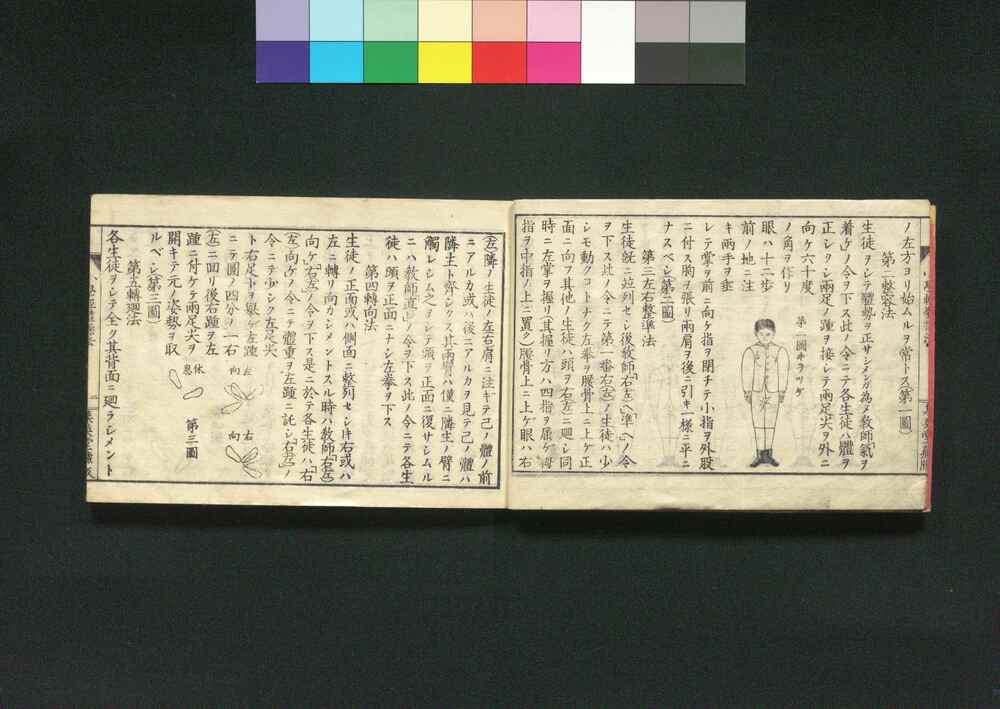 ノ左方ヨリ始ムルヲ常トス(第一圖)
第二整容法
生徒ヲシテ體勢ヲ正サシメンガ爲メ教師「氣ヲ
着ケ」ノ令ヲ下ス此ノ令ニテ各生徒ハ體ヲ
正シクシ兩足ノ踵ヲ接シテ兩足尖ヲ外ニ
向ケ六十度
ノ角ヲ作リ
眼ハ十二歩
前ノ地ニ注
キ兩手ヲ垂
レテ掌ヲ前ニ向ケ指ヲ閉チテ小指ヲ外股
ニ付ス胸ヲ張リ兩肩ヲ後ニ引キ一樣ニ平ニ
ナスベシ(第二圖)
第二圖キヲツケ
第三左右整準法
生徒既ニ竝列セシ後教師「右(左)ヘ準ヘ」ノ令
ヲ下ス此ノ令ニテ第一番右(左)ノ生徒ハ少
シモ動クコトナク左拳ヲ腰骨上ニ上ケ正
面ニ向フ其他ノ生徒ハ頭ヲ右(左)ニ廻シ同
時ニ左掌ヲ握リ(其握リ方ハ四指ヲ屈ケ拇
指ヲ中指ノ上ニ置ク)腰骨上ニ上ケ眼ハ右
(左)隣ノ生徒ノ左右肩ニ注キテ己ノ體ノ前
ニアルカ或ハ後ニアルカヲ見テ己ノ體ハ
隣生ト齊シクス其兩臂ハ僅ニ隣生ノ臂ニ
觸レシム之ヲシテ頭ヲ正面ニ復サシムル
ニハ教師「直レ」ノ令ヲ下ス此ノ令ニテ各生
徒ハ頭ヲ正面ニナシ左拳ヲ下ス
第四轉向法
生徒ノ正面或ハ側面ニ整列セシ時右或ハ
左ニ轉リ向カシメントスル時ハ教師「右(左)
向ケ」「右(左)」ノ令ヲ下ス是ニ於テ各生徒ハ「右
(左)向ケ」ノ令ニテ體重ヲ左踵ニ託シ「右(左)」ノ
令ニテ少シク左足尖
ト右足トヲ擧ケ左踵
ニテ圓ノ四分ノ一右
(左)ニ回リ後右踵ヲ左
踵ニ付ケテ兩足尖ヲ
開キテ元ノ姿勢ヲ取
ルベシ(第三圖)
左向
右向
休息
第三圖
第五轉廻法
各生徒ヲシテ全ク其背面ニ廻ラシメント